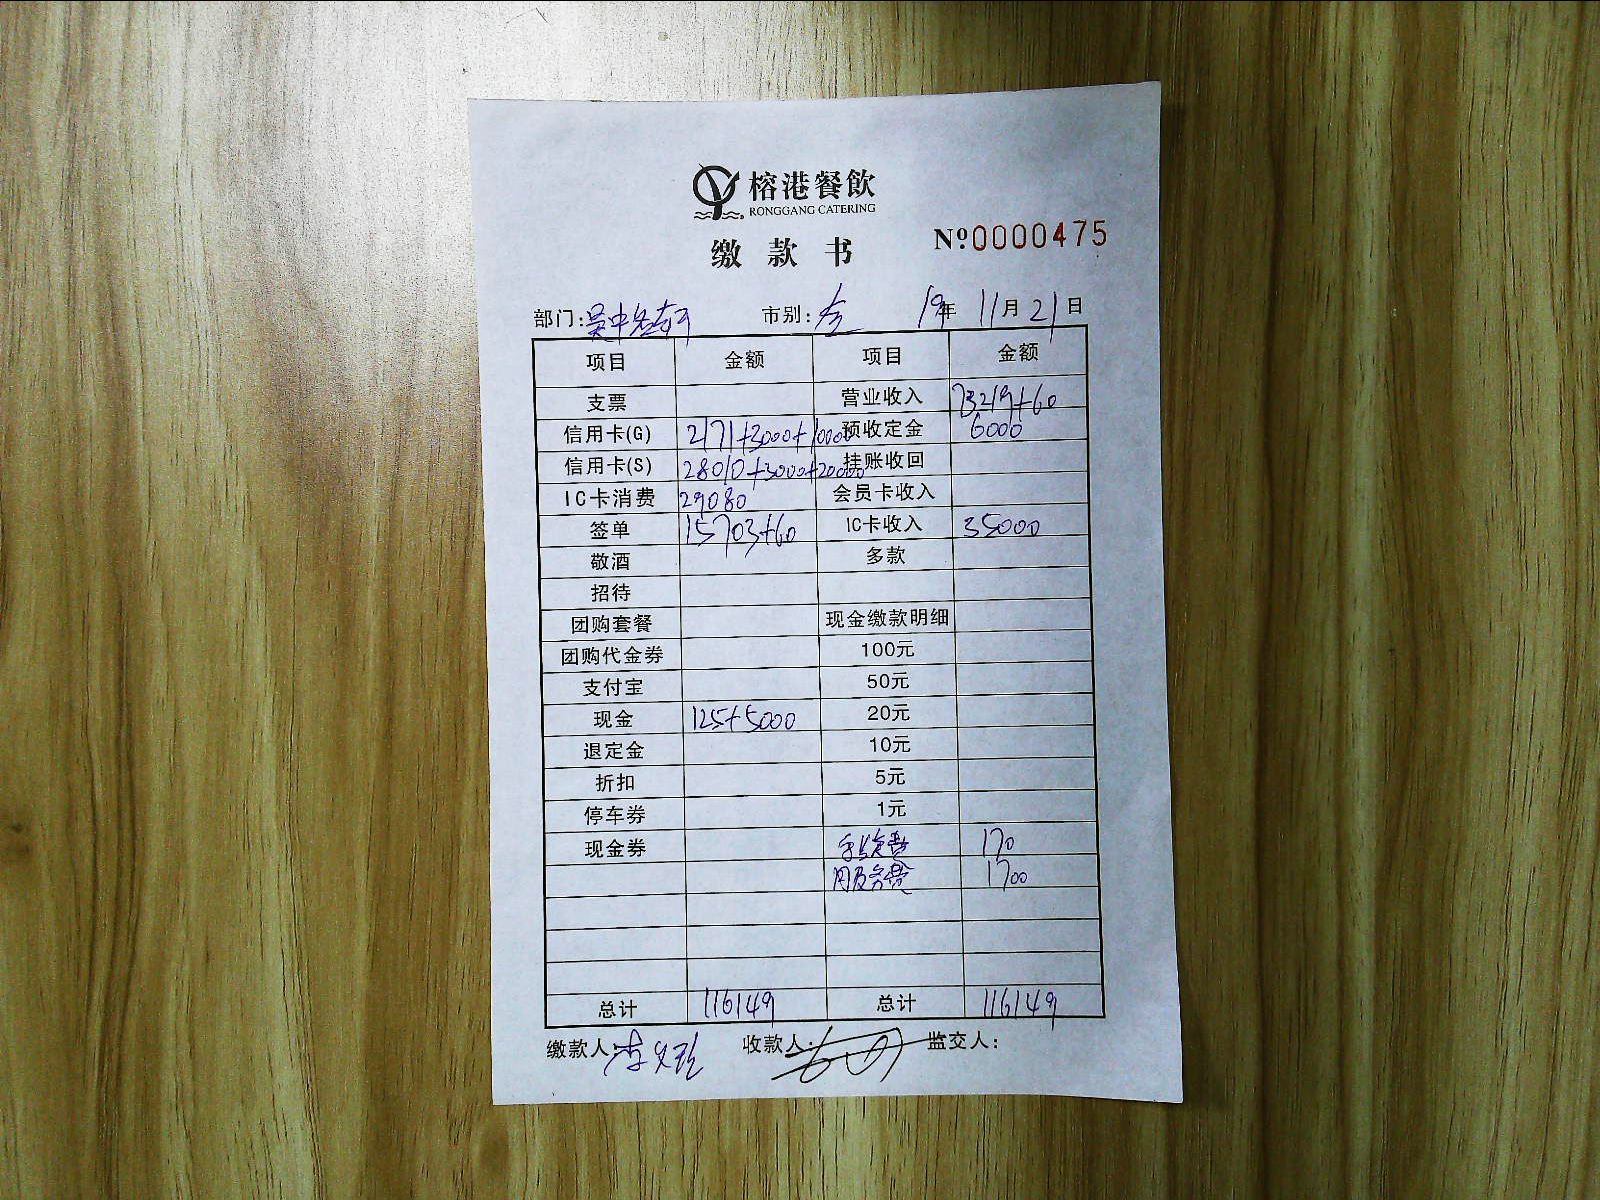 榕港餐飲
RONGGANG CATERING
缴款书
Nº0000475
部门: 市别:全 19年 11月21日
项目 金额 项目 金额
支票 营业收入 73219+60
信用卡(G) 2171+3000+10000 预收定金 6000
信用卡(S) 28010+3000+20000 挂账收回
IC卡消费 29080 会员卡收入
签单 15703+60 IC卡收入 35000
敬酒 多款
招待
团购套餐 现金缴款明细
团购代金券 100元
支付宝 50元
现金 125+5000 20元
退定金 10元
折扣 5元
停车券 1元
现金券 手续费 170
服务费 1700
总计 116149 总计 116149
缴款人: 收款人: 监交人: